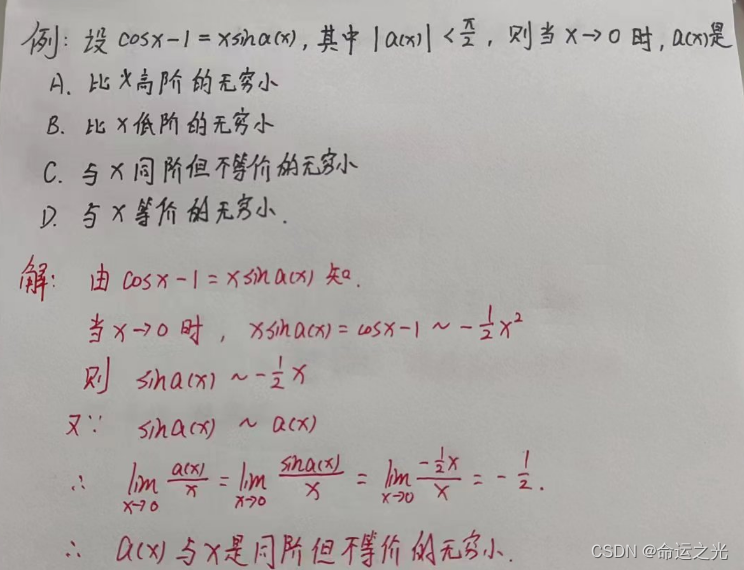 例: 设 cosx-1=xsina(x), 其中 |a(x)|<π/2, 则当 x→0 时, a(x)是
A. 比x高阶的无穷小
B. 比x低阶的无穷小
C. 与x同阶但不等价的无穷小
D. 与x等价的无穷小.
解: 由 cosx-1=xsina(x) 知.
当x→0时, xsina(x)=cosx-1~-1/2x²
则 sina(x)~-1/2x
又∵ sina(x)~a(x)
∴ lim x→0 a(x)/x = lim x→0 sina(x)/x = lim x→0 -1/2x/x = -1/2.
∴ a(x)与x是同阶但不等价的无穷小.
CSDN @命运之光